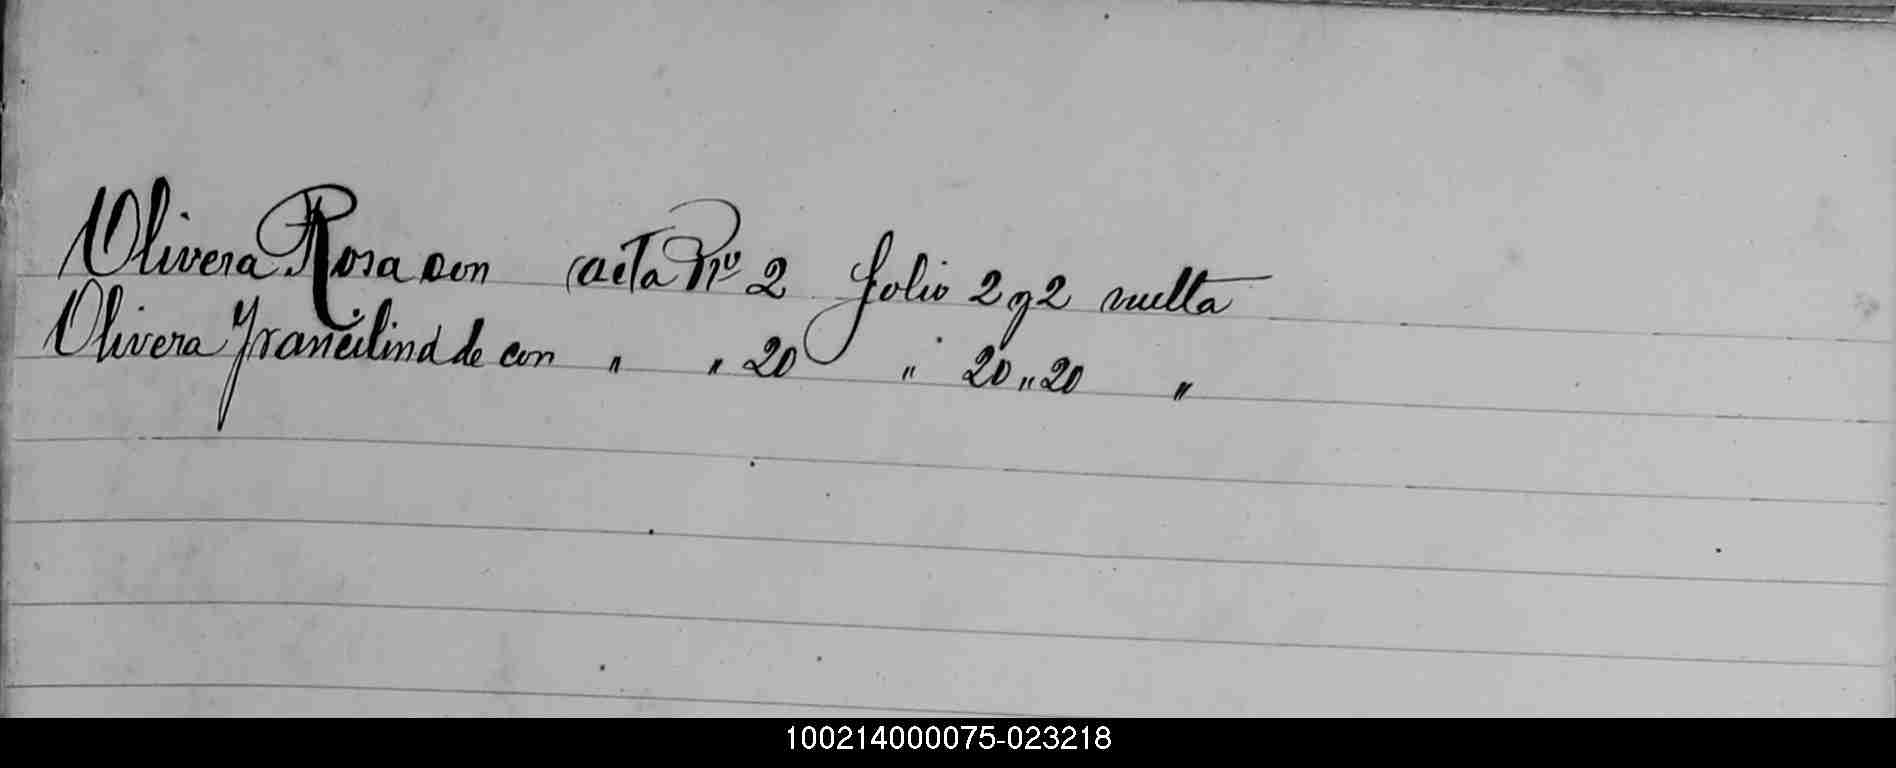 Olivera Rosa con acta Nº 2 folio 2 y 2 vuelta
Olivera Francilina de con " " 20 " 20 " 20 "
100214000075-023218